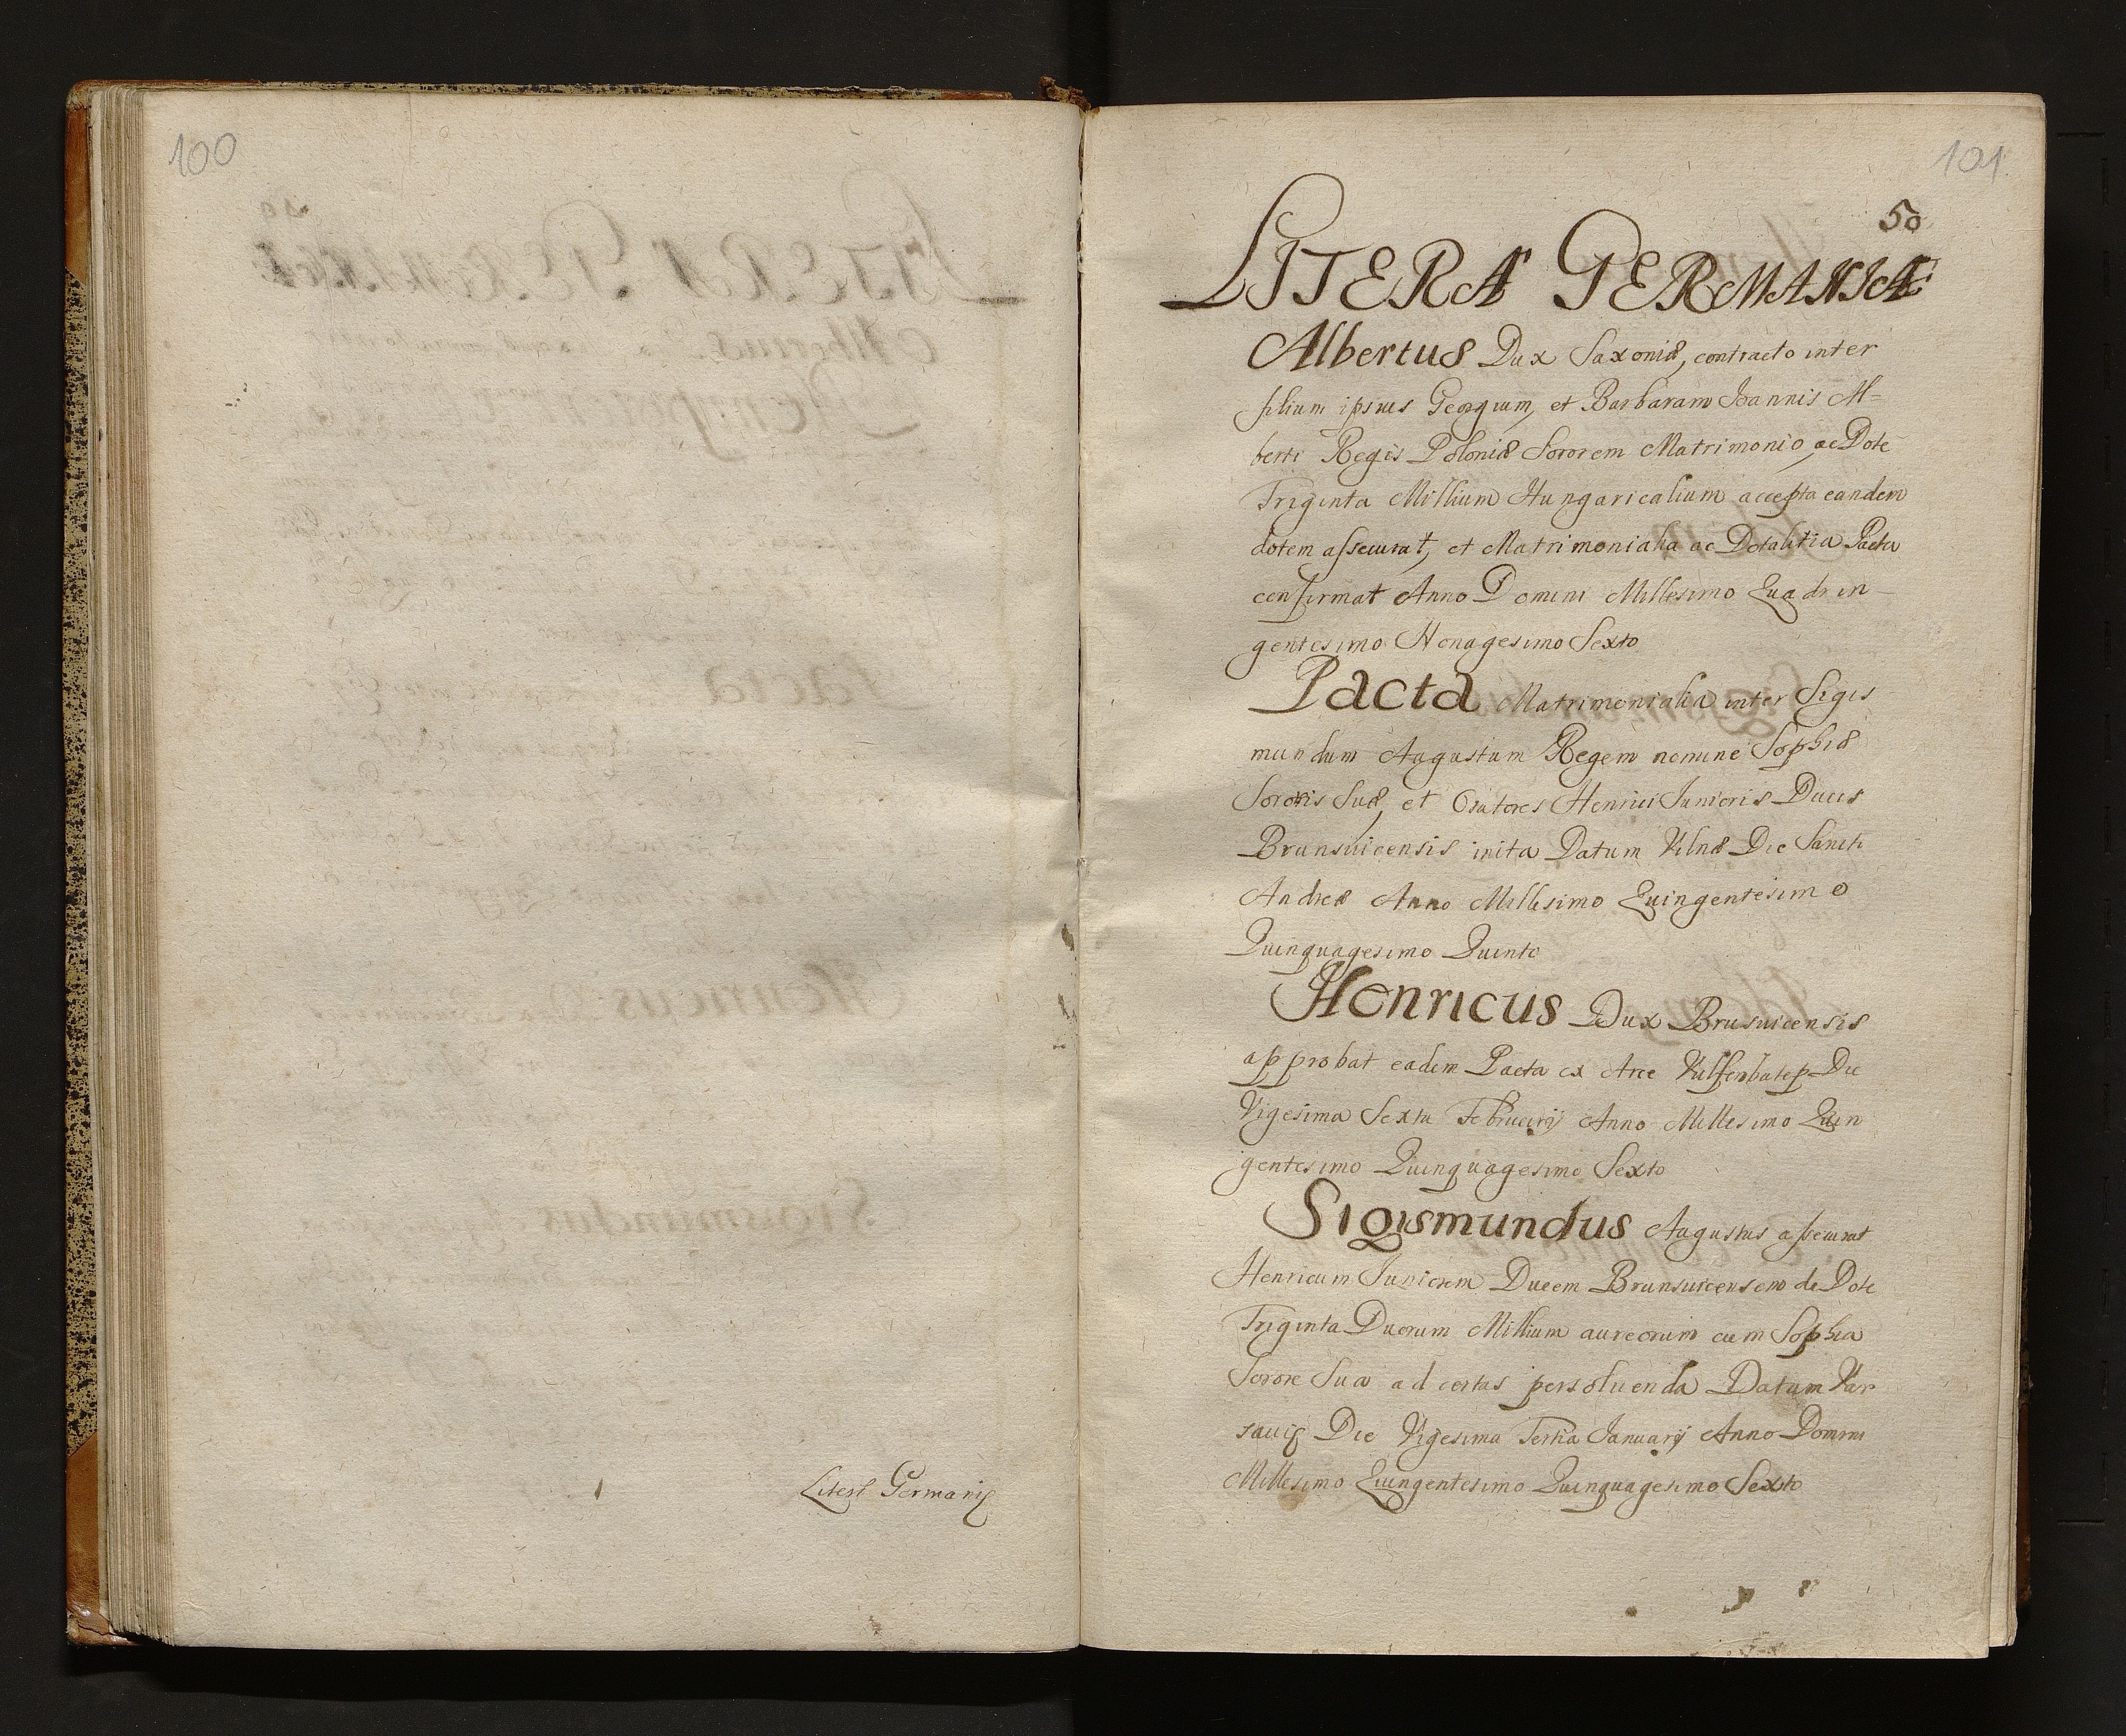 100
Literæ Germaniæ
101
50
LITERÆ GERMANIÆ
Albertus Dux Saxoniæ, contracto inter
filium ipsius Georgium, et Barbaram Ioannis Al=
berti Regis Poloniæ Sororem Matrimonio, ac Dote
Triginta Millium Hungaricalium accepta eandem
dotem assecurat, et Matrimonialia ac Dotalitia Pacta
confirmat Anno Domini Millesimo Quadrin-
gentesimo Nonagesimo Sexto
Pacta Matrimonialia inter Sigis
mundum Augustum Regem nomine Sophiæ
Sororis Suæ, et Oratores Henrici Iunioris Ducis
Brunsuicensis inita Datum Vilnæ Die Sancti
Andreæ Anno Millesimo Quingentesimo
Quinquagesimo Quinto
Henricus Dux Brusuicensis
approbat eadem Pacta ex Arce Vulfenbatep Die
Vigesima Sexta Februarij Anno Millesimo Quin
gentesimo Quinquagesimo Sexto
Sigismundus Augustus assecurat
Henricum Iuniorem Ducem Brunsuicensem de Dote
Triginta Duorum Millium aureorum cum Sophia
Sorore Sua ad certas persoluenda Datum Var
sauiæ Die Vigesima Tertia Ianuarij Anno Domini
Millesimo Quingentesimo Quinquagesimo Sexto